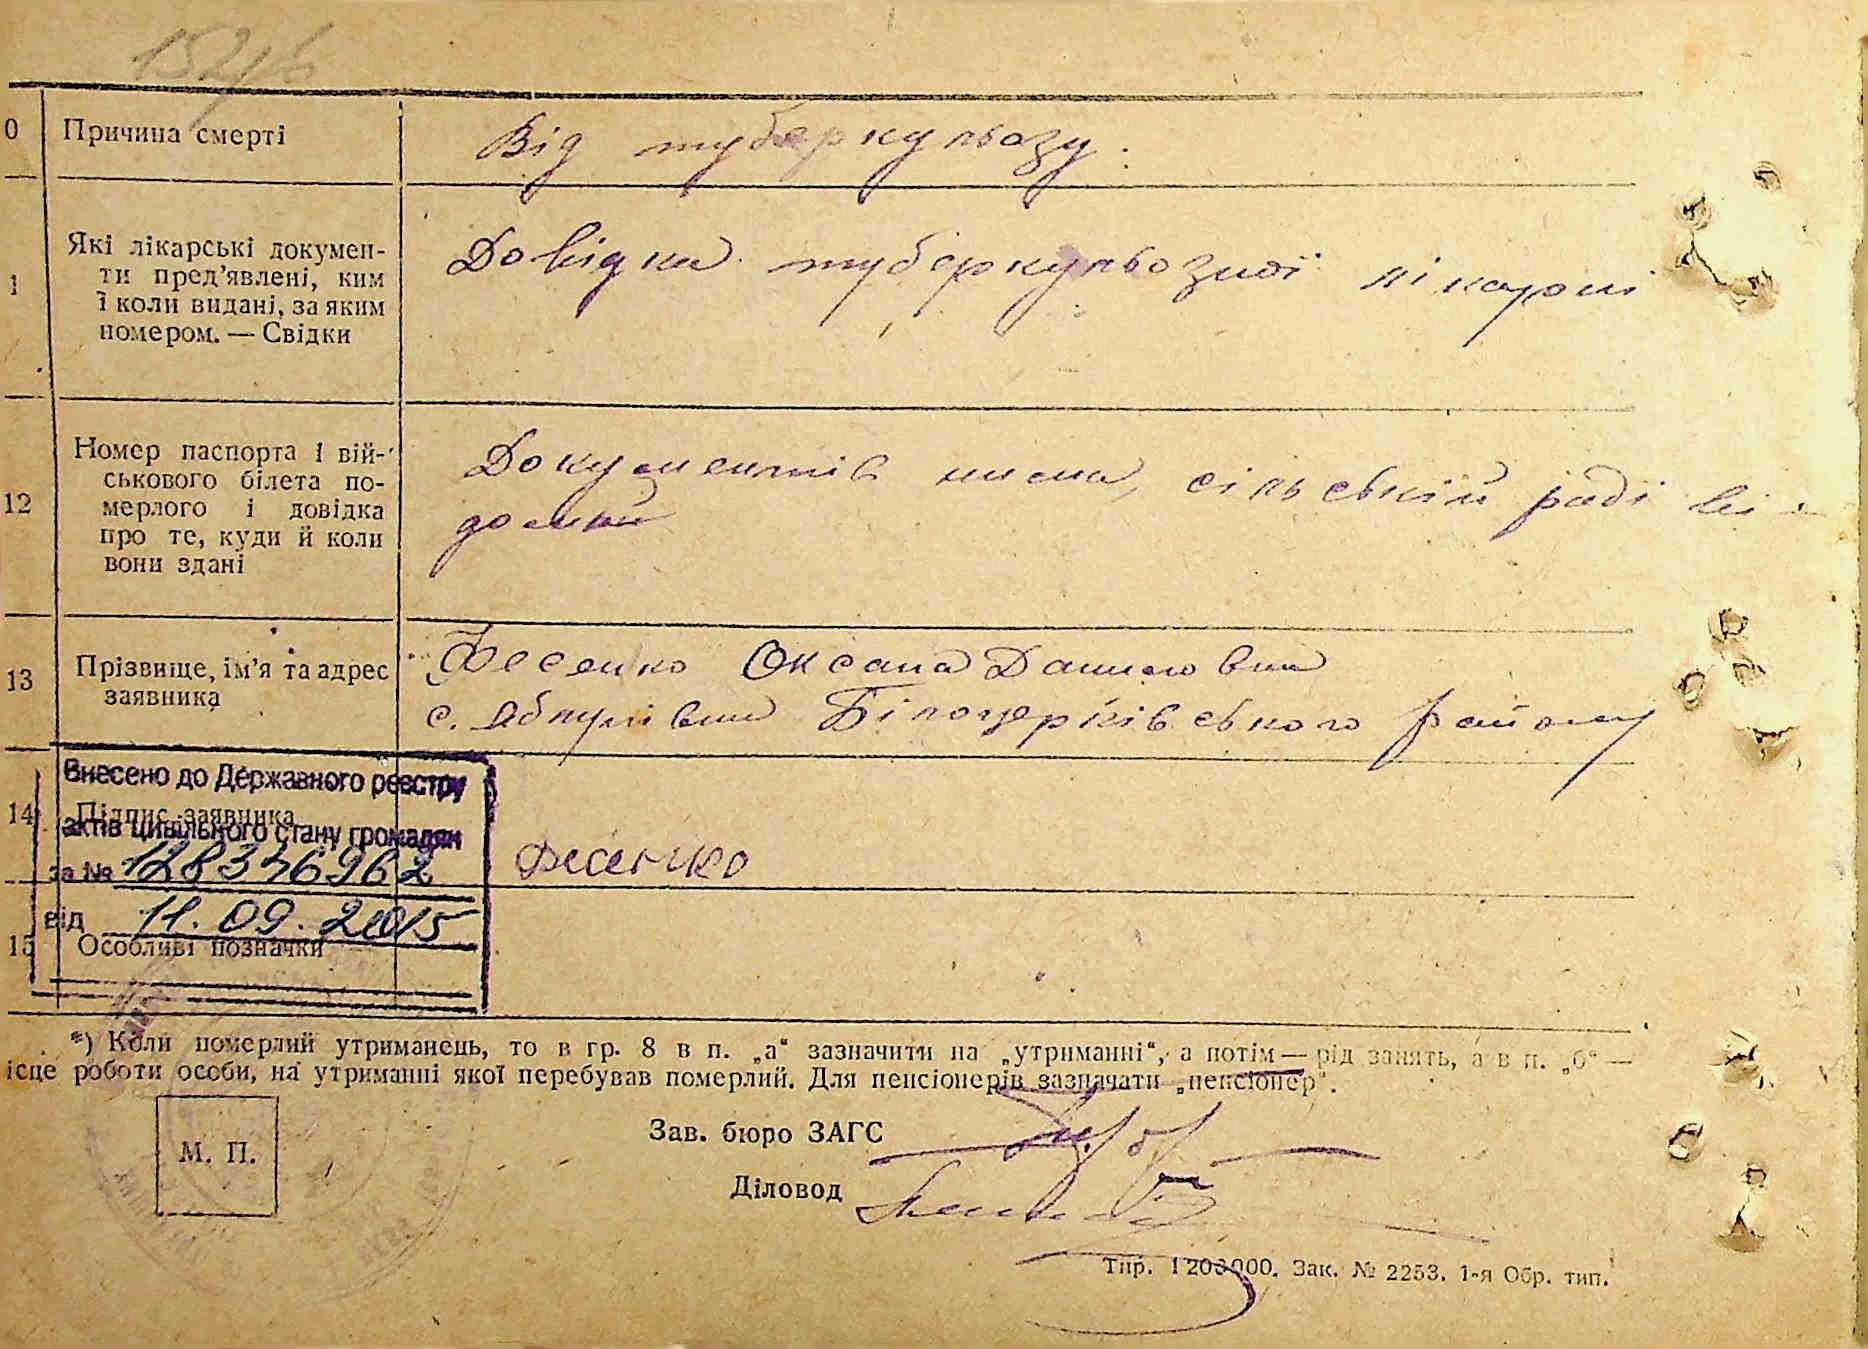 152/6
0 Причина смерті Від туберкульозу.
1 Які лікарські докумен-
ти пред'явлені, ким
і коли видані, за яким
номером. — Свідки
Довідка туберкульозної лікарні
12 Номер паспорта і вій-
ськового білета по-
мерлого і довідка
про те, куди й коли
вони здані
Документів нема, сільській раді ві
домий
13 Прізвище, ім'я та адрес
заявника
Фесенко Оксана Даниловна
с. Яблунівка Білоцерківського району
Внесено до Державного реєстру
14 Підпис заявника
актів цивільного стану громадян
Фесенко
за № 128346962
від 11.09.2015
15 Особливі позначки
*) Коли померлий утриманець, то в гр. 8 в п. „а“ зазначити на „утриманні“, а потім — рід занять, а в п. „б“ —
ісце роботи особи, на утриманні якої перебував померлий. Для пенсіонерів зазначати „пенсіонер“.
Зав. бюро ЗАГС
М. П.
Діловод
Тир. 1200000. Зак. № 2253. 1-я Обр. тип.